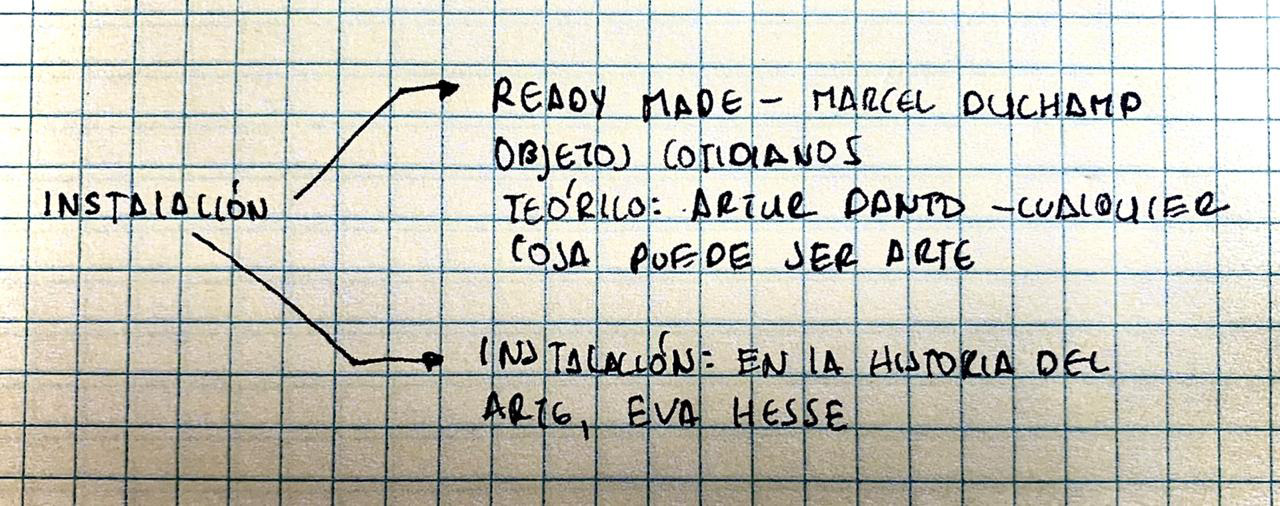 READY MADE - MARCEL DUCHAMP
OBJETOS COTIDIANOS
INSTALACIÓN
TEÓRICO: ARTUR DANTO - CUALQUIER
COSA PUEDE SER ARTE
INSTALACIÓN: EN LA HISTORIA DEL
ARTE, EVA HESSE